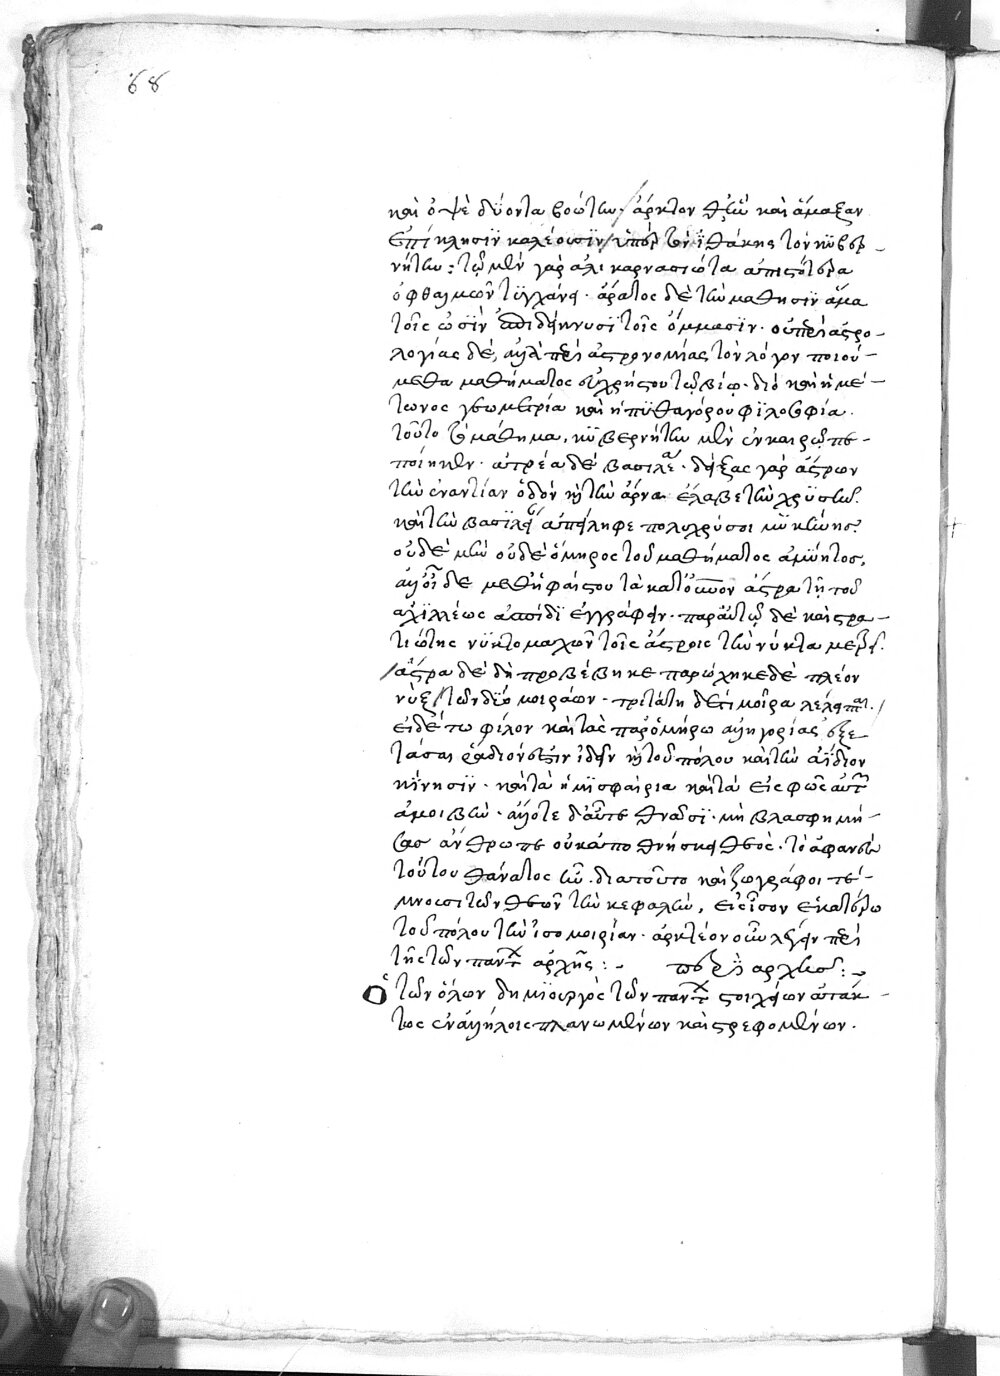 68
καὶ ὀψὲ δύοντα βοώτην· ἄρκτον θ' ἣν καὶ ἅμαξαν
ἐπίκλησιν καλέουσιν ὑπὲρ τὸν ἰθάκης τὸν κυβερ-
νήτην: τῷ μὲν γὰρ ἁλικαρνασιῶτα ἀπιστότερα
ὀφθαλμῶν τυγχάνει· ἄρατος δὲ τὴν μάθησιν ἅμα
τοῖς ὠσὶν ἐπιδείκνυσι τοῖς ὄμμασιν· οὐ περὶ ἀστρο-
λογίας δέ, ἀλλὰ περὶ ἀστρονομίας τὸν λόγον ποιού-
μεθα μαθήματος εὐχρήστου τῷ βίῳ· διὸ καὶ ἡ μέ-
τωνος γεωμετρία καὶ ἡ πυθαγόρου φιλοσοφία.
τοῦτο τὸ μάθημα, κυβερνήτην μὲν ἐν καιρῷ πε-
ποίηκεν· ἀτρέα δὲ βασιλέα· δείξας γὰρ ἄστρων
τὴν ἐναντίαν ὁδὸν καὶ τὴν ἄρνα ἔλαβε τὴν χρυσῆν.
καὶ τὴν βασιλείαν ἀπείληφε πολυχρύσοι μυκήνης
οὐδὲ μὴν οὐδὲ ὅμηρος τοῦ μαθήματος ἀμύητος,
ἀλλ' οἱ δὲ μεθ' ἡφαίστου τὰ κατ' οὐρανὸν ἄστρα τῇ τοῦ
ἀχιλλέως ἀσπίδι ἐγγράφειν· παρ' αὐτῷ δὲ καὶ στρα-
τιώτης νυκτομαχῶν τοῖς ἄστροις τὴν νύκτα μετρεῖ.
ἄστρα δὲ δὴ προβέβηκε παρώχηκε δὲ πλέον
νὺξ τῶν δύο μοιράων· τριτάτη δ' ἔτι μοῖρα λέλειπται.
εἰ δέ τω φίλον καὶ τὰς παρ' ὁμήρω ἀλληγορίας ἐξε
τάσαι ῥάδιόν ἐστιν ἰδεῖν καὶ τοῦ πόλου καὶ τὴν ἀΐδιον
κίνησιν· καὶ τὰ ἡμισφαίρια καὶ τὰ εἰς φῶς αὐτῶν
ἀμοιβὴν· ἄλλοτε δ' αὖτε θνᾶσι· μὴ βλασφημή-
σας ἄνθρωπε οὐκ ἀποθνήσκει θεός· τὸ ἀφανὲς
τούτου θάνατος ἦν· διατοῦτο καὶ ζωγράφοι τέ-
μνουσι τῶν θεῶν τὴν κεφαλὴν, εἰς ἴσον ἑκατέρω
τοῦ πόλου τὴν ἰσομοιρίαν· ἀρκτέον οὖν λέγειν περὶ
τῆς τῶν πάντων ἀρχῆς: - περὶ ἀρχῆς: -
Ὁ τῶν ὅλων δημιουργὸς τῶν πάντων στοιχείων ἀτάκ-
τως ἐν ἀλλήλοις πλανωμένων καὶ στρεφομένων.